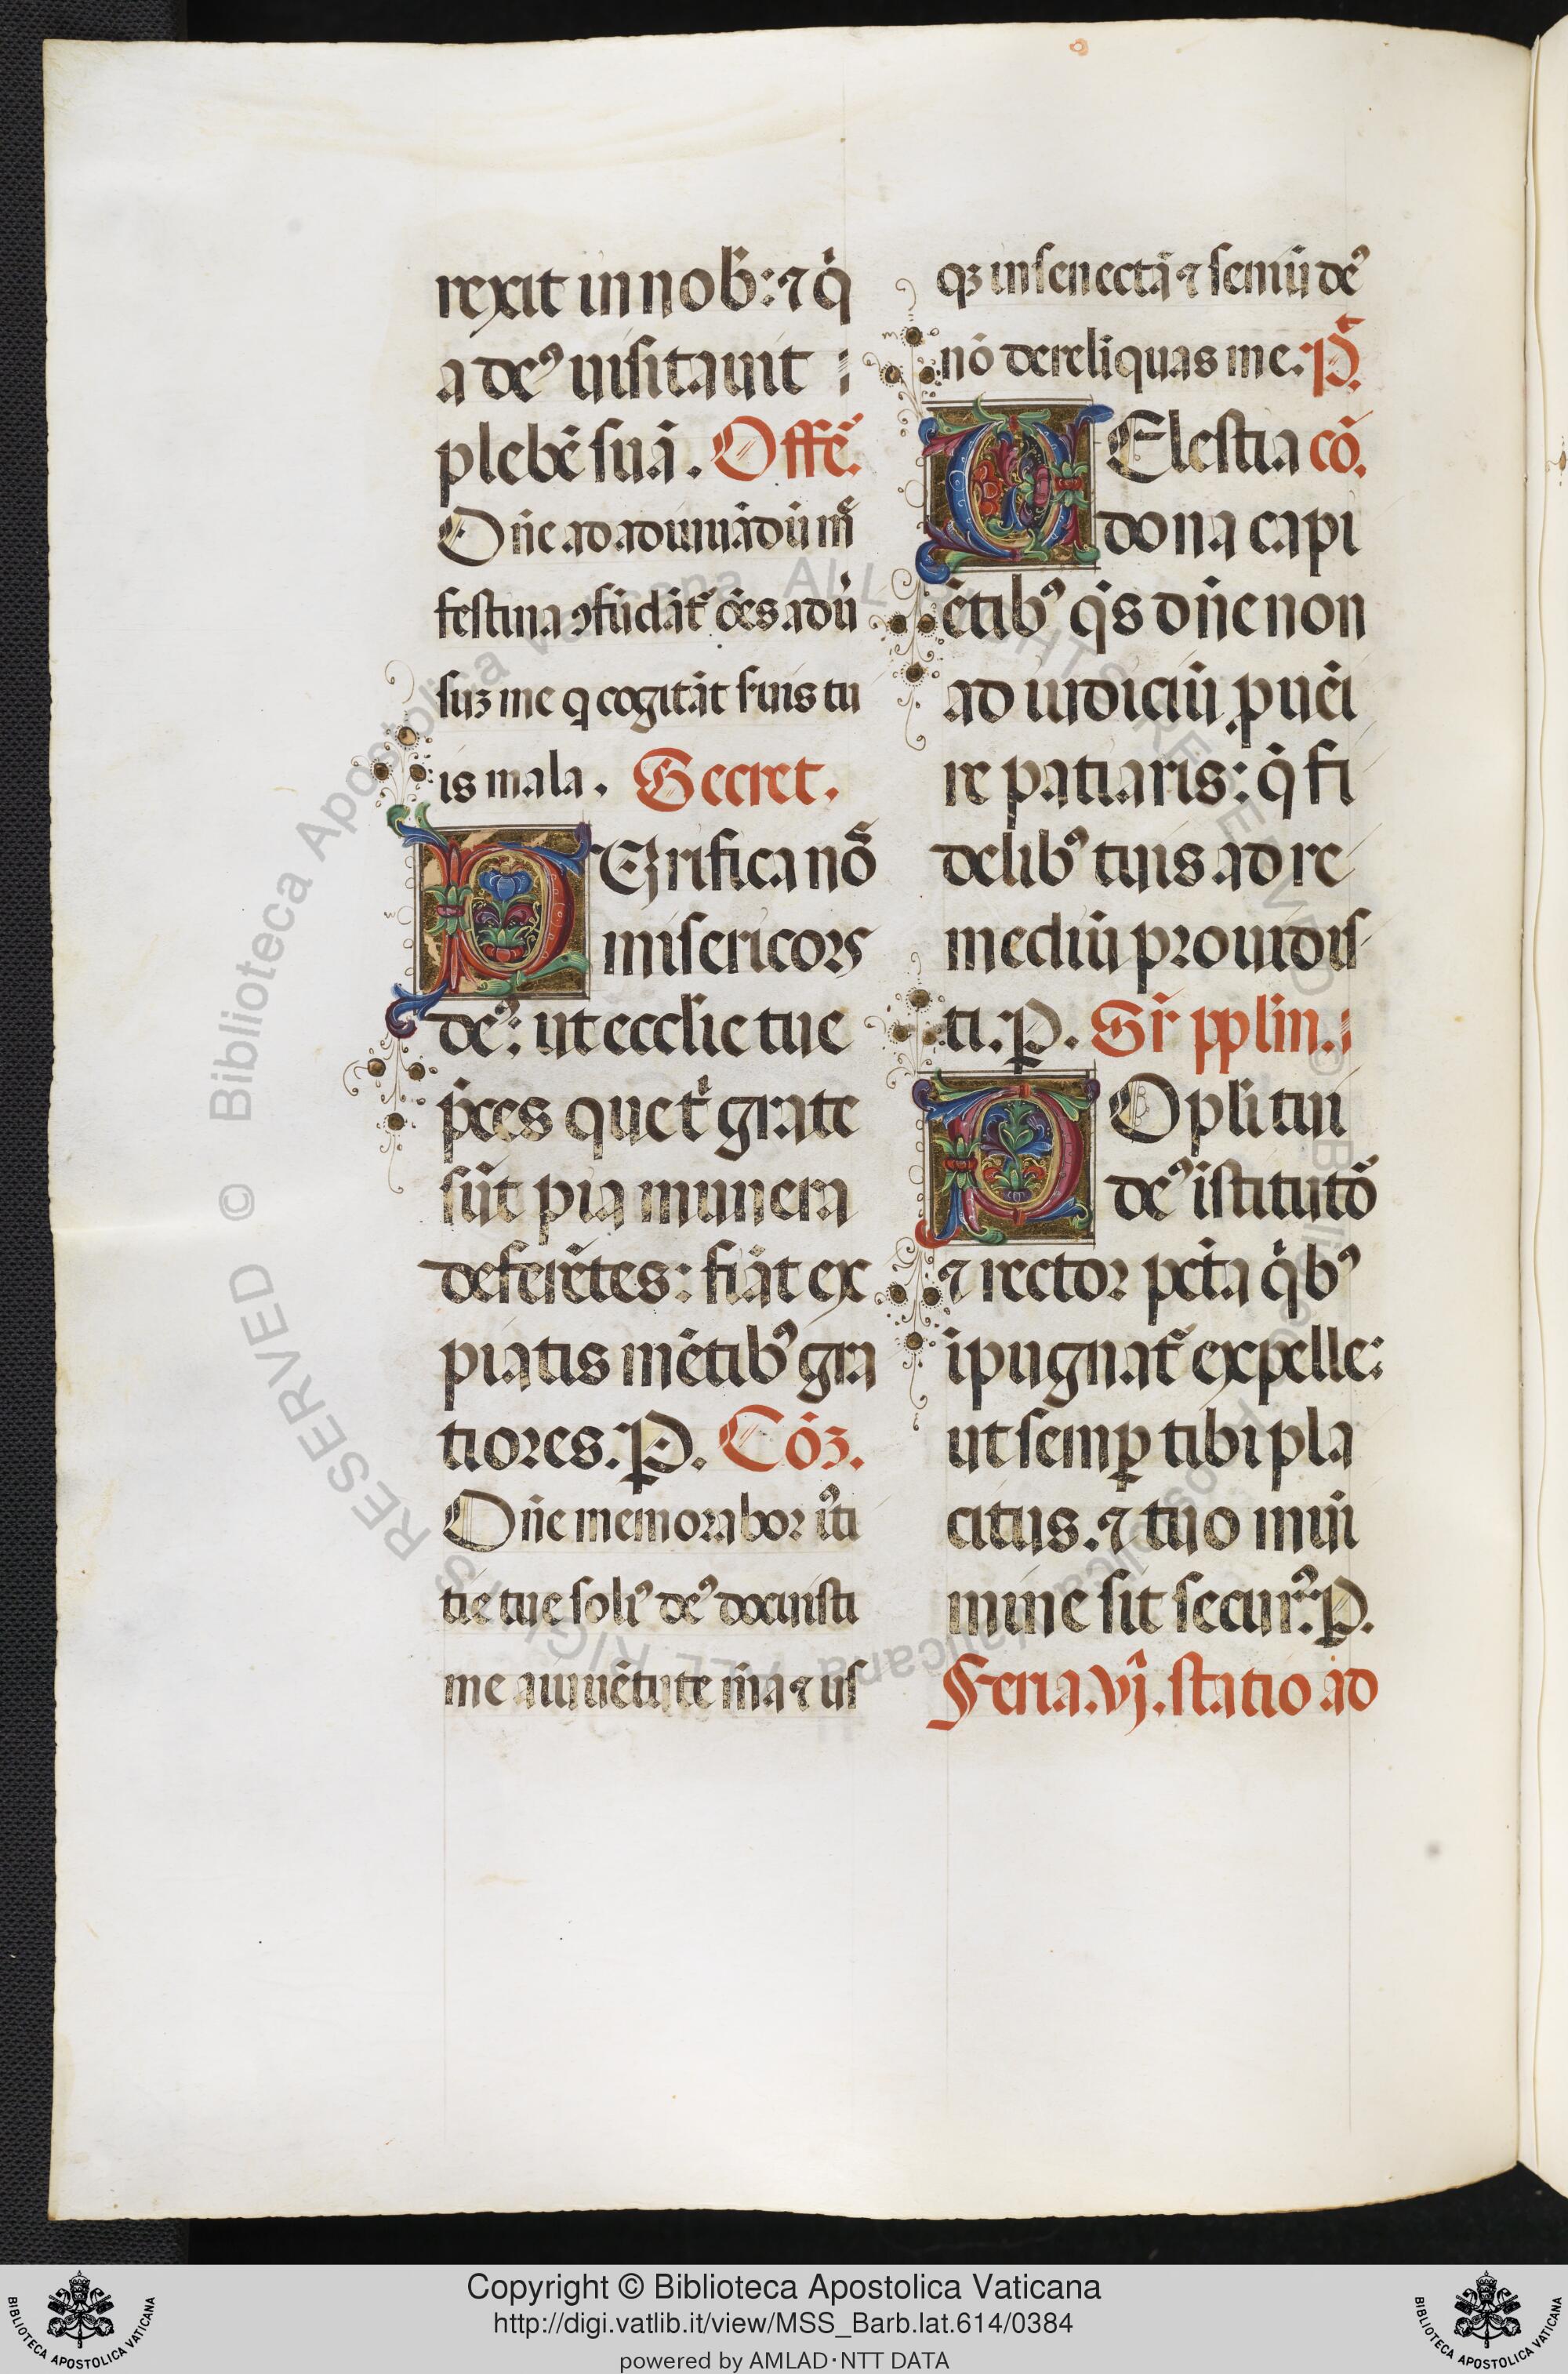 rexit in nob̃: ⁊ q̇
a deꝰ uisitauit :
plebẽ suã. Offẽ.
Dñe ad adiuuãdũ m̃
festina ꝯfũdãt᷑ oẽs adũ
suꝫ me q cogitãt s̃uis tu
is mala. Secret.
PUrifica nõ
misericors
deꝰ: ut ecclie tue
p̃ces que t᷑ grate
sũt pia munera
deferẽtes: fiãt ex
piatis mẽtibꝰ gra
tiores. P. Cõꝫ.
Dñe memorabor iꝰti
tie tue soliꝰ deꝰ docuisti
me a iuuẽtute m̃a ⁊ us
qꝫ in senectã ⁊ seniũ deꝰ
nõ derelĩquas me. P̃.
CElestia cõ.
dona capi
ẽtibꝰ q̃s dñe non
ad iudiciũ ꝓuẽi
re patiaris: q̇ fi
delibꝰ tuis ad re
mediũ prouidis
ti. P. Sr̃ pplm̃.
POpli tui
deꝰ istitutõ
⁊ rector pct̃a q̇bꝰ
ĩpugnat᷑ expelle:
ut semꝑ tibi pla
citus. ⁊ tuo mũi
mine sit securꝰ. P.
Feria. vj. statio ad
Copyright © Biblioteca Apostolica Vaticana
http://digi.vatlib.it/view/MSS_Barb.lat.614/0384
powered by AMLAD·NTT DATA
BIBLIOTECA APOSTOLICA VATICANA
BIBLIOTECA APOSTOLICA VATICANA
© Biblioteca Apostolica Vaticana ALL RIGHTS RESERVED
© Biblioteca Apostolica Vaticana ALL RIGHTS RESERVED